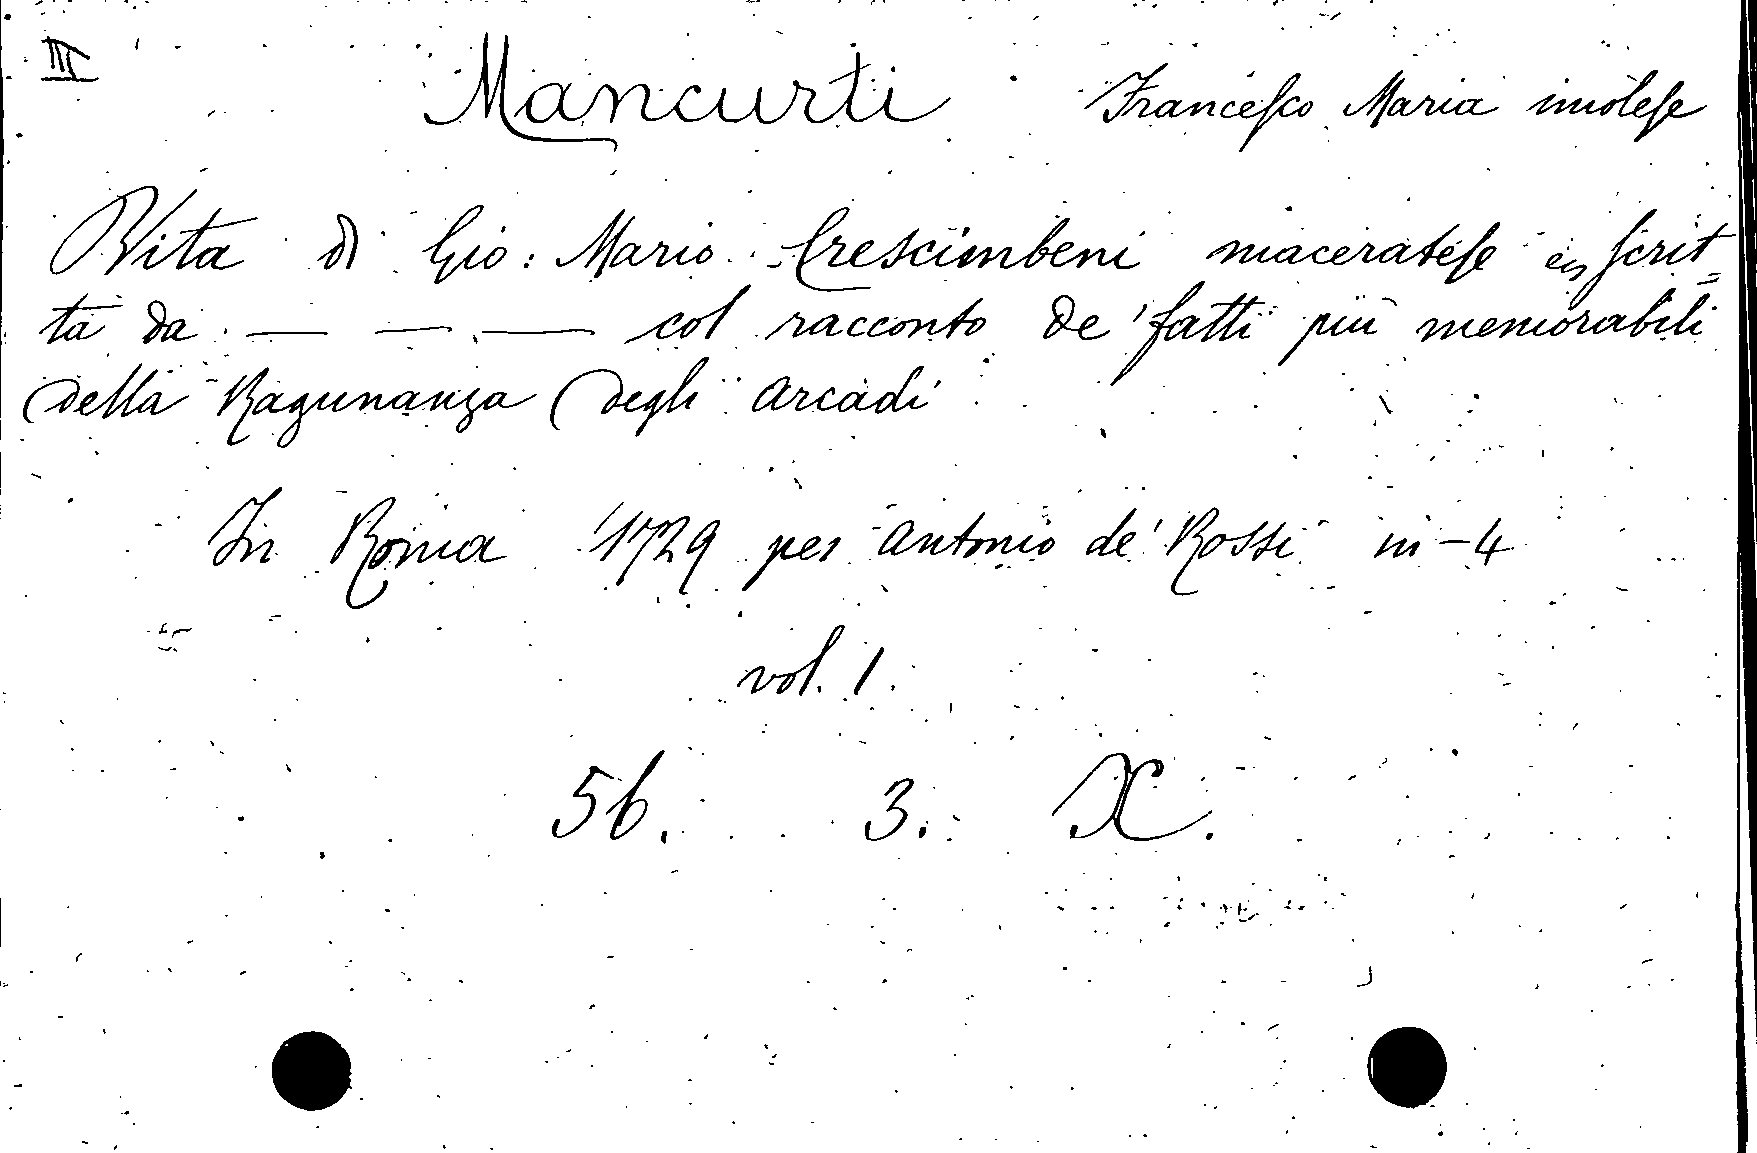 III
Mancurti Francesco Maria imolese
Vita di Gio: Mario Crescimbeni maceratese scrit=
ta da — — — col racconto de' fatti più memorabili
della Ragunanza degli Arcadi
In Roma 1729 per Antonio de' Rossi in-4
vol. 1.
56. 3. X.